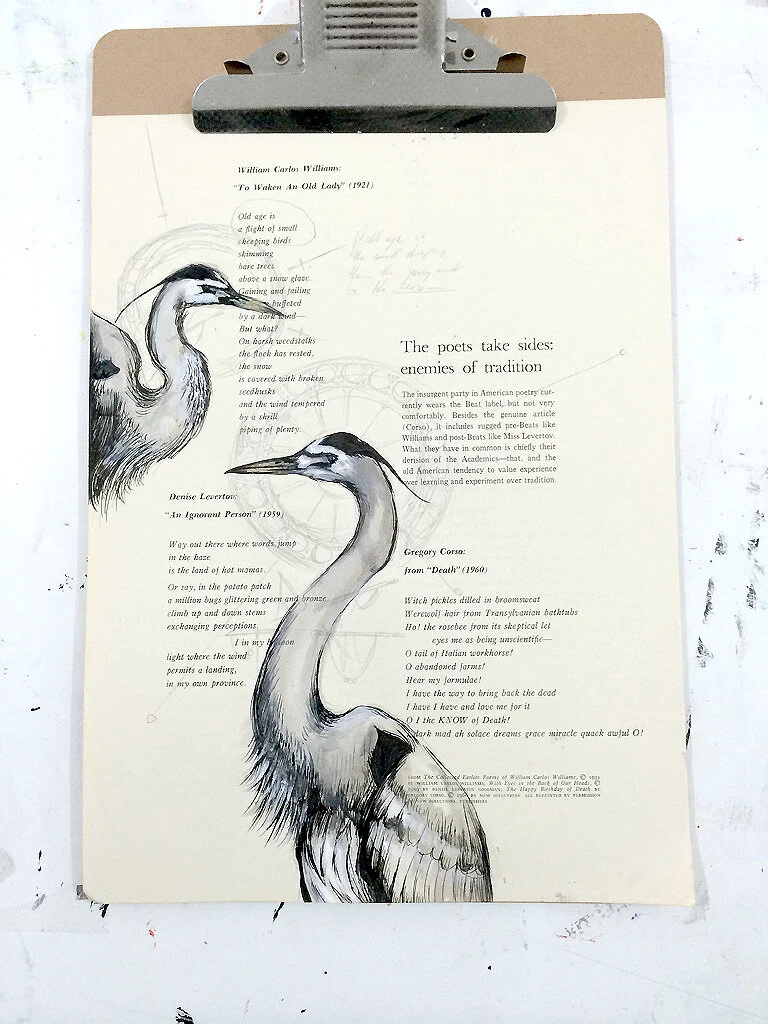 William Carlos Williams:
"To Waken An Old Lady" (1921)
Old age is
a flight of small
cheeping birds
skimming
bare trees
above a snow glaze.
Gaining and failing
buffeted
by a dark wind—
But what?
On harsh weedstalks
the flock has rested,
the snow
is covered with broken
seedhusks
and the wind tempered
by a shrill
piping of plenty.
The poets take sides:
enemies of tradition
The insurgent party in American poetry cur-
rently wears the Beat label, but not very
comfortably. Besides the genuine article
(Corso), it includes rugged pre-Beats like
Williams and post-Beats like Miss Levertov.
What they have in common is chiefly their
derision of the Academics—that, and the
old American tendency to value experience
over learning and experiment over tradition.
Denise Levertov:
"An Ignorant Person" (1959)
Way out there where words jump
in the haze
is the land of hot mamas.
Or say, in the potato patch
a million bugs glittering green and bronze
climb up and down stems
exchanging perceptions.
I in my
light where the wind
permits a landing,
in my own province.
Gregory Corso:
from "Death" (1960)
Witch pickles dilled in broomsweat
Werewolf hair from Transylvanian bathtubs
Ho! the rosebee from its skeptical let
eyes me as being unscientific—
O tail of Italian workhorse!
O abandoned farms!
Hear my formulae!
I have the way to bring back the dead
I have I have and love me for it
O I the KNOW of Death!
dark mad ah solace dreams grace miracle quack awful O!
FROM The Collected Earlier Poems of William Carlos Williams, © 1951
BY WILLIAM CARLOS WILLIAMS; With Eyes in the Back of Our Heads, ©
BY DENISE LEVERTOV GOODMAN; The Happy Birthday of Death BY
GREGORY CORSO, © 1960 BY NEW DIRECTIONS. ALL REPRINTED BY PERMISSION
NEW DIRECTIONS, PUBLISHERS